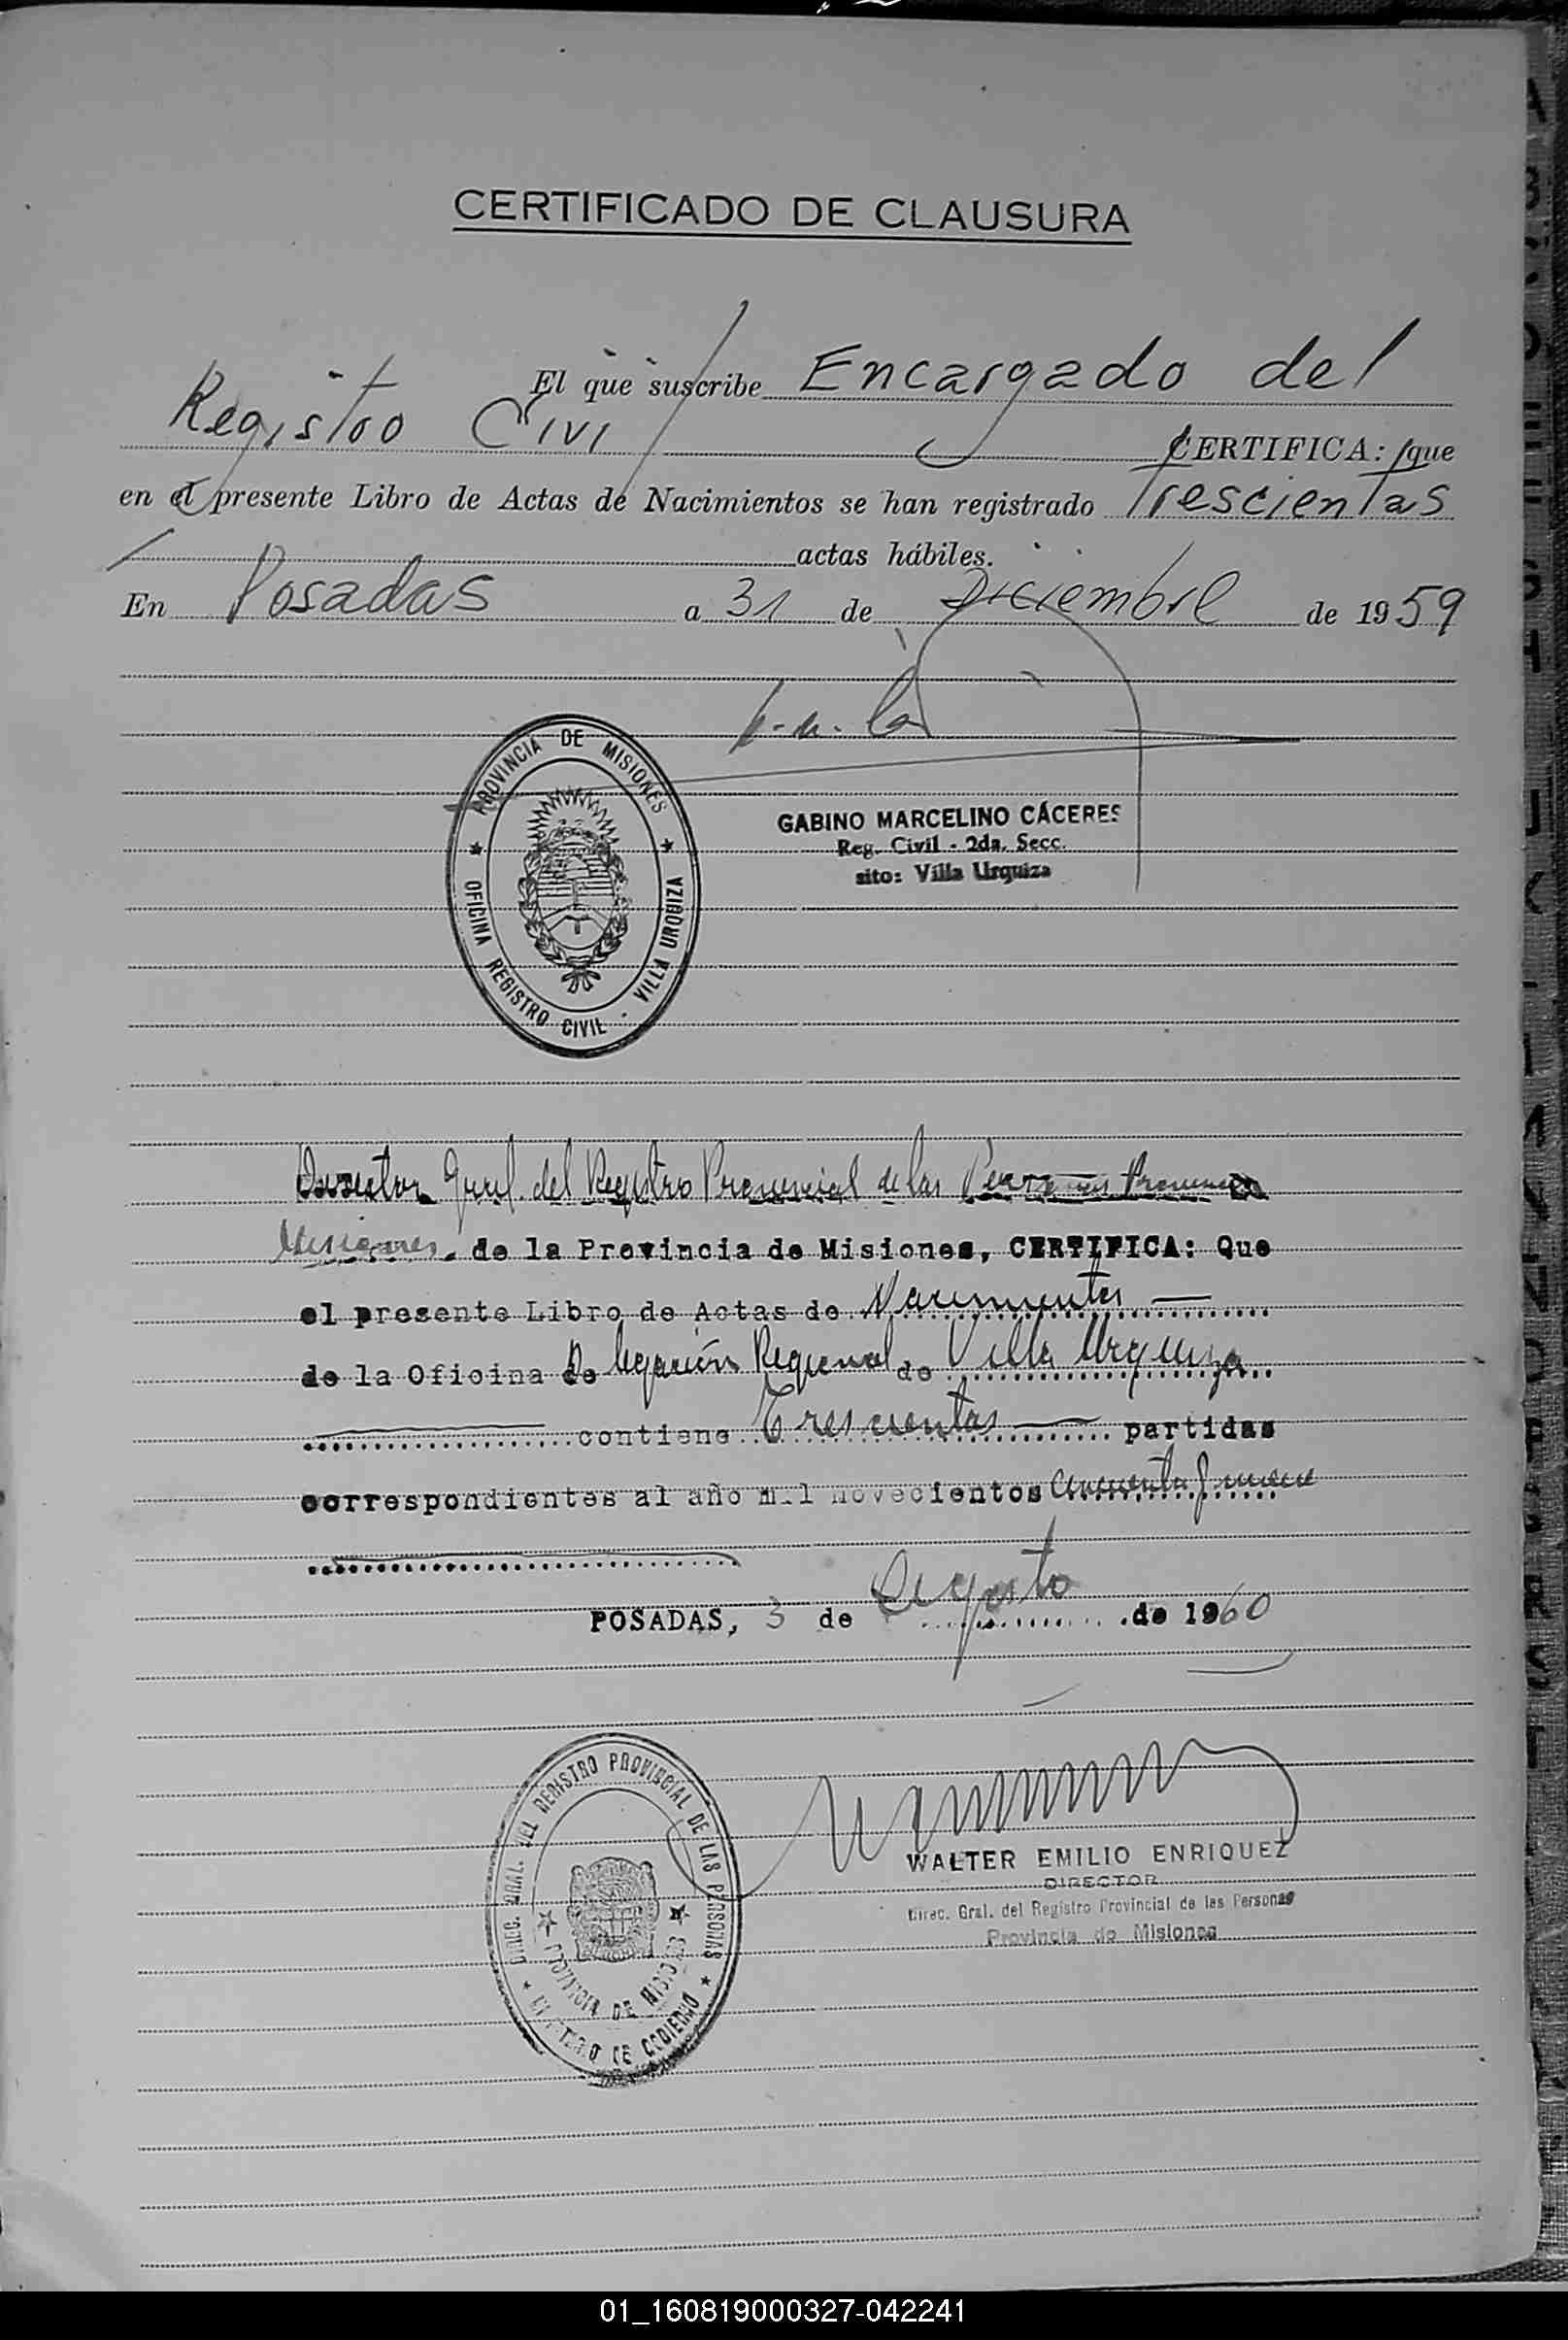 CERTIFICADO DE CLAUSURA
El que suscribe Encargado del
Registro Civil CERTIFICA: que
en el presente Libro de Actas de Nacimientos se han registrado Trescientas
actas hábiles.
En Posadas a 31 de Diciembre de 1959
PROVINCIA DE MISIONES
OFICINA REGISTRO CIVIL - VILLA URQUIZA
GABINO MARCELINO CÁCERES
Reg. Civil - 2da. Secc.
sito: Villa Urquiza
Director Gral. del Registro Provincial de las
Misiones. de la Provincia de Misiones, CERTIFICA: Que
el presente Libro de Actas de Nacimientos
de la Oficina Delegación Regional de Villa Urquiza
contiene Trescientas partidas
correspondientes al año mil novecientos cincuenta y nueve
POSADAS, 3 de Agosto de 1960
DIREC. GRAL. DEL REGISTRO PROVINCIAL DE LAS PERSONAS
PROVINCIA DE MISIONES
MINISTERIO DE GOBIERNO
WALTER EMILIO ENRIQUEZ
DIRECTOR
Direc. Gral. del Registro Provincial de las Personas
Provincia de Misiones
01_160819000327-042241